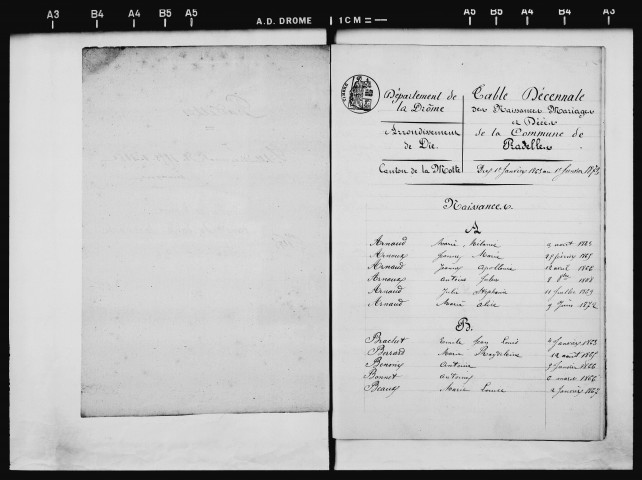 A3 B4 A4 B5 A5 A.D. DROME 1 CM A5 B5 A4 B4 A3
Département de
la Drôme
Arrondissement
de Die
Canton de la Motte
Table Décennale
des Naissances Mariages
et Décès
de la Commune de
Pradelles
Du 1er Janvier 1863 au 1er Janvier 1873
Naissances
A
Arnaud Marie 9 août 1863
Arnoux Marie 1865
Arnaud Appollonie 12 avril 1866
Arnoux Antoine Jules 8 8bre 1868
Arnaud Julie Stéphanie 11 Juillet 1869
Arnaud Marie 9 Juin 1872
B
Brachet Emile Jean Louis Janvier 1863
Barard Marie Magdeleine 12 août 1865
Antoine Janvier 1866
Bonnet Antoine mars 1866
Beaux Marie Louise Janvier